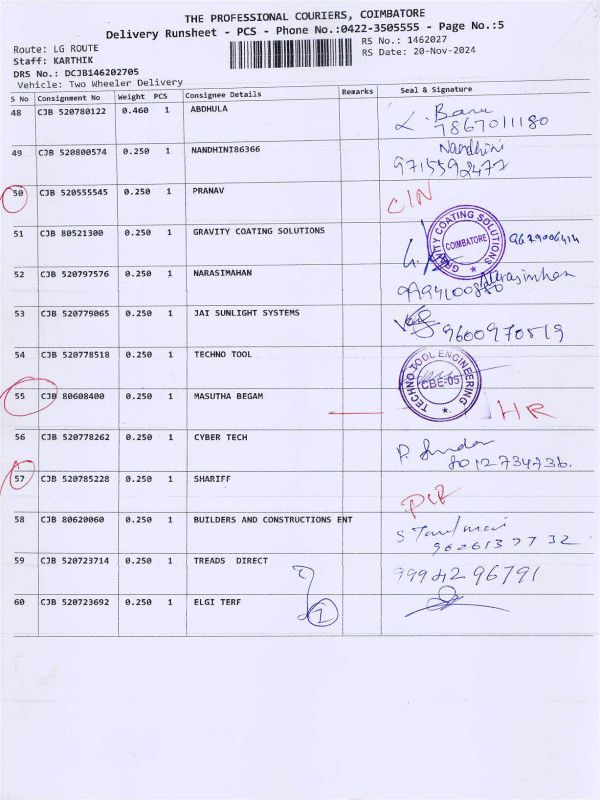 THE PROFESSIONAL COURIERS, COIMBATORE
Delivery Runsheet - PCS - Phone No.:0422-3505555 - Page No.:5
Route: LG ROUTE RS No.: 1462027
Staff: KARTHIK RS Date: 20-Nov-2024
DRS No.: DCJB146202705
Vehicle: Two Wheeler Delivery
S No Consignment No Weight PCS Consignee Details Remarks Seal & Signature
48 CJB 520780122 0.460 1 ABDHULA L. Banu
7867011180
49 CJB 520800574 0.250 1 NANDHINI86366 Nandhini
9715592477
50 CJB 520555545 0.250 1 PRANAV CIN
51 CJB 80521300 0.250 1 GRAVITY COATING SOLUTIONS GRAVITY COATING SOLUTIONS COIMBATORE
52 CJB 520797576 0.250 1 NARASIMAHAN Narasimhan
53 CJB 520779065 0.250 1 JAI SUNLIGHT SYSTEMS 9600970519
54 CJB 520778518 0.250 1 TECHNO TOOL TECHNO TOOL ENGINEERING CBE-05
55 CJB 80608400 0.250 1 MASUTHA BEGAM HR
56 CJB 520778262 0.250 1 CYBER TECH
8012734736.
57 CJB 520785228 0.250 1 SHARIFF
58 CJB 80620060 0.250 1 BUILDERS AND CONSTRUCTIONS ENT
9626137732
59 CJB 520723714 0.250 1 TREADS DIRECT 7994296791
60 CJB 520723692 0.250 1 ELGI TERF